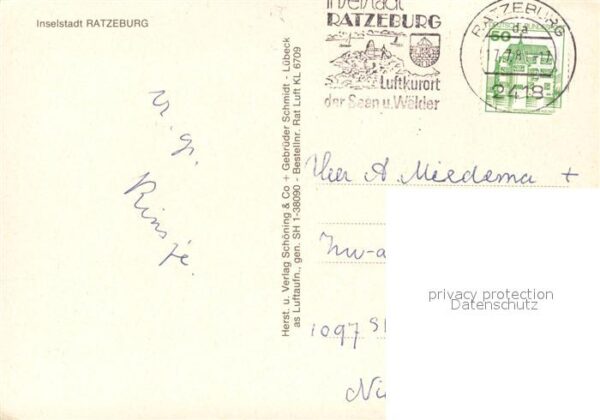 Inselstadt RATZEBURG
Inselstadt
RATZEBURG
Luftkurort
der Seen u. Wälder
RATZEBURG
da
2418
50
Herst. u. Verlag Schöning & Co + Gebrüder Schmidt - Lübeck
as Luftaufn., gen. SH 1-38090 - Bestellnr. Rat Luft KL 6709
v. gr.
Rinsje.
Heer A Miedema +
1097
privacy protection
Datenschutz